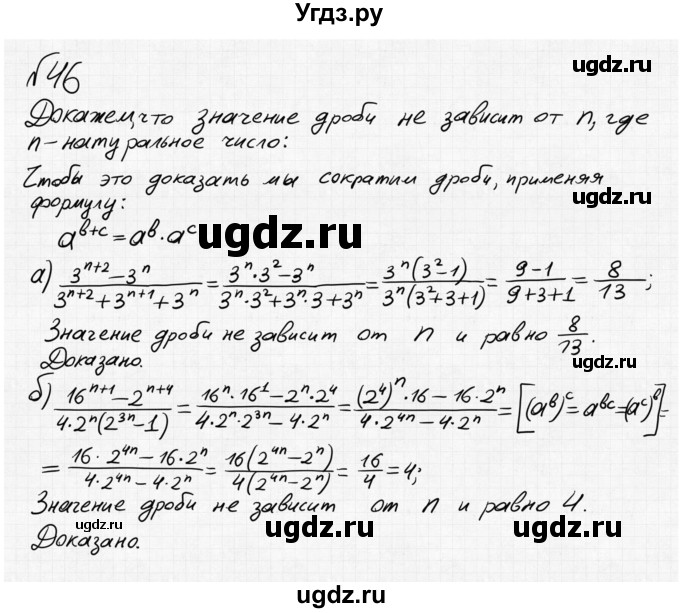 Угдз.ру
№46
ugdz.ru
Докажем, что значение дроби не зависит от n, где
n-натуральное число:
Чтобы это доказать мы сократим дроби, применяя
ugdz.ru
формулу:
a^(b+c) = a^b · a^c
ugdz.ru
а) (3^(n+2) − 3^n)/(3^(n+2) + 3^(n+1) + 3^n) = (3^n·3^2 − 3^n)/(3^n·3^2 + 3^n·3 + 3^n) = (3^n(3^2−1))/(3^n(3^2+3+1)) = (9−1)/(9+3+1) = 8/13;
Значение дроби не зависит от n и равно 8/13.
Доказано.
ugdz.ru
б) (16^(n+1) − 2^(n+4))/(4·2^n(2^(3n) − 1)) = (16^n·16^1 − 2^n·2^4)/(4·2^n·2^(3n) − 4·2^n) = ((2^4)^n·16 − 16·2^n)/(4·2^(4n) − 4·2^n) = [(a^b)^c = a^(bc) = (a^c)^b] =
= (16·2^(4n) − 16·2^n)/(4·2^(4n) − 4·2^n) = (16(2^(4n) − 2^n))/(4(2^(4n) − 2^n)) = 16/4 = 4;
Значение дроби не зависит от n и равно 4.
ugdz.ru
ugdz.ru
ugdz.ru
Доказано.
ugdz.ru